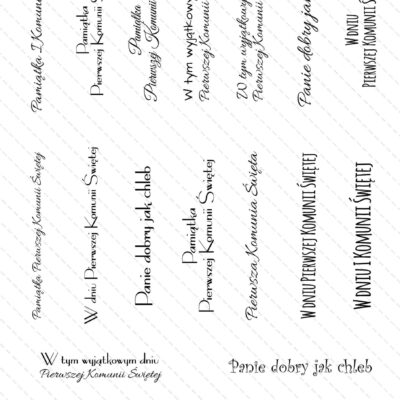 Pamiątka I Komunii
Pamiątka
Pierwszej Komunii
Pamiątka
Pierwszej Komunii
W tym wyjątkowym
Pierwszej Komunii
W tym wyjątkowym
Pierwszej Komunii
Panie dobry jak
W DNIU
PIERWSZEJ KOMUNII Ś
Pamiątka Pierwszej Komunii Świętej
W dniu Pierwszej Komunii Świętej
Panie dobry jak chleb
Pamiątka
Pierwszej Komunii Świętej
Pierwsza Komunia Święta
W DNIU PIERWSZEJ KOMUNII ŚWIĘTEJ
W DNIU I KOMUNII ŚWIĘTEJ
W tym wyjątkowym dniu
Pierwszej Komunii Świętej
Panie dobry jak chleb